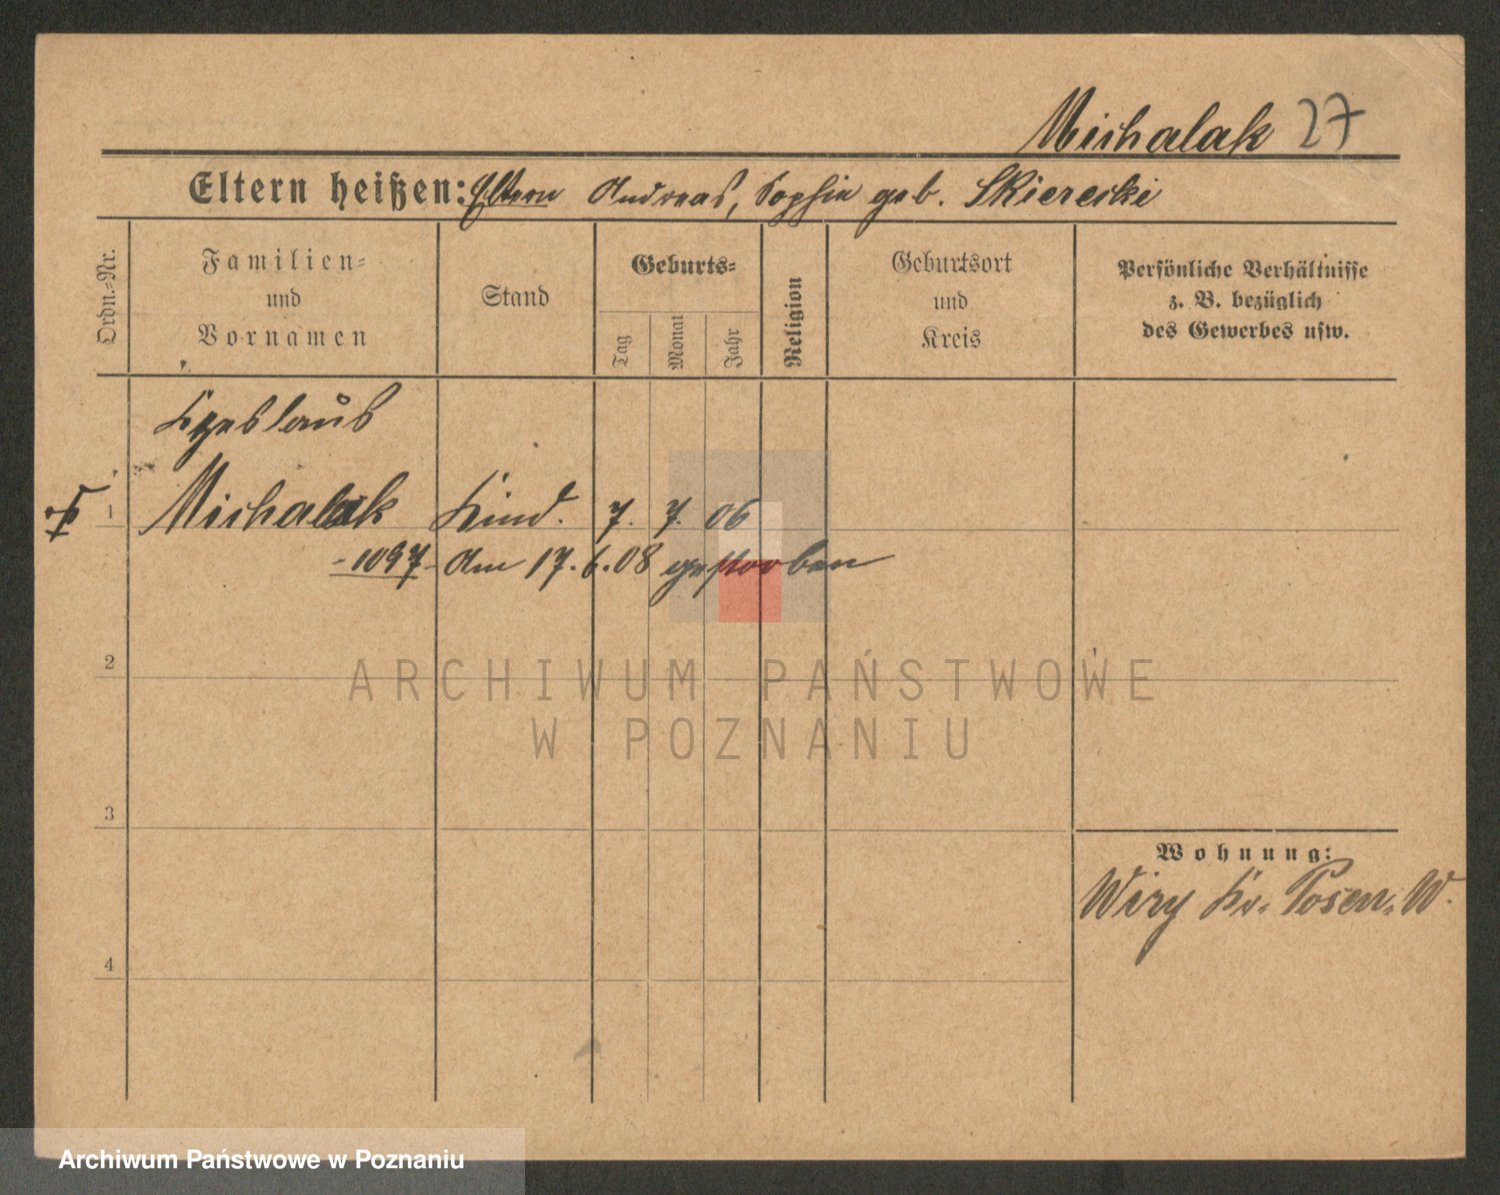 Michalak 27
Eltern heißen: Eltern Andreas, Sophie geb. Skierecki
Ordn.-Nr.
Familien-
und
Vornamen
Stand
Geburts-
Tag
Monat
Jahr
Religion
Geburtsort
und
Kreis
Persönliche Verhältnisse
z. B. bezüglich
des Gewerbes usw.
1 Michalak Kind. 7. 7. 06
-1097- Am 17.6.08 gestorben
2
ARCHIWUM PAŃSTWOWE
W POZNANIU
3
Wohnung:
Wiry Kr. Posen. W.
4
Archiwum Państwowe w Poznaniu